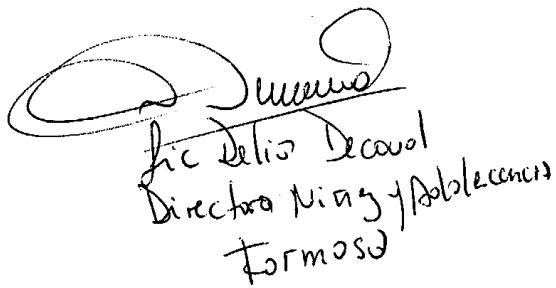 Lic Delia Decoud
Directora Niñez y Adolescencia
Formosa